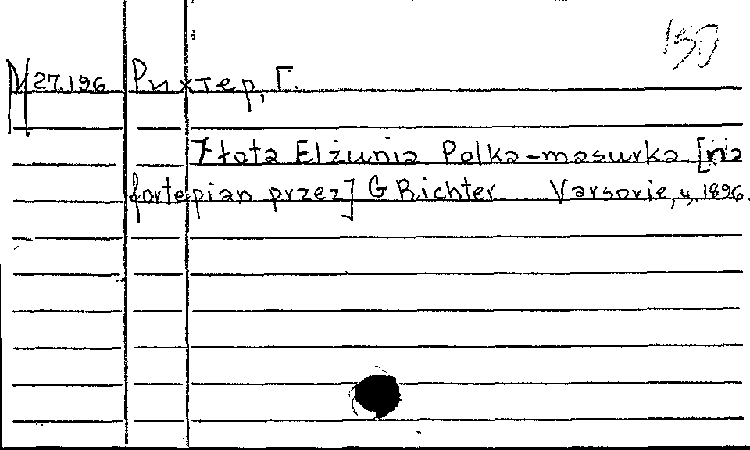 150
М 27.196 Рихтер, Г.
Złota Elżunia Polka-masurka [na
fortepian przez] G Richter Varsovie, ц. 1896.